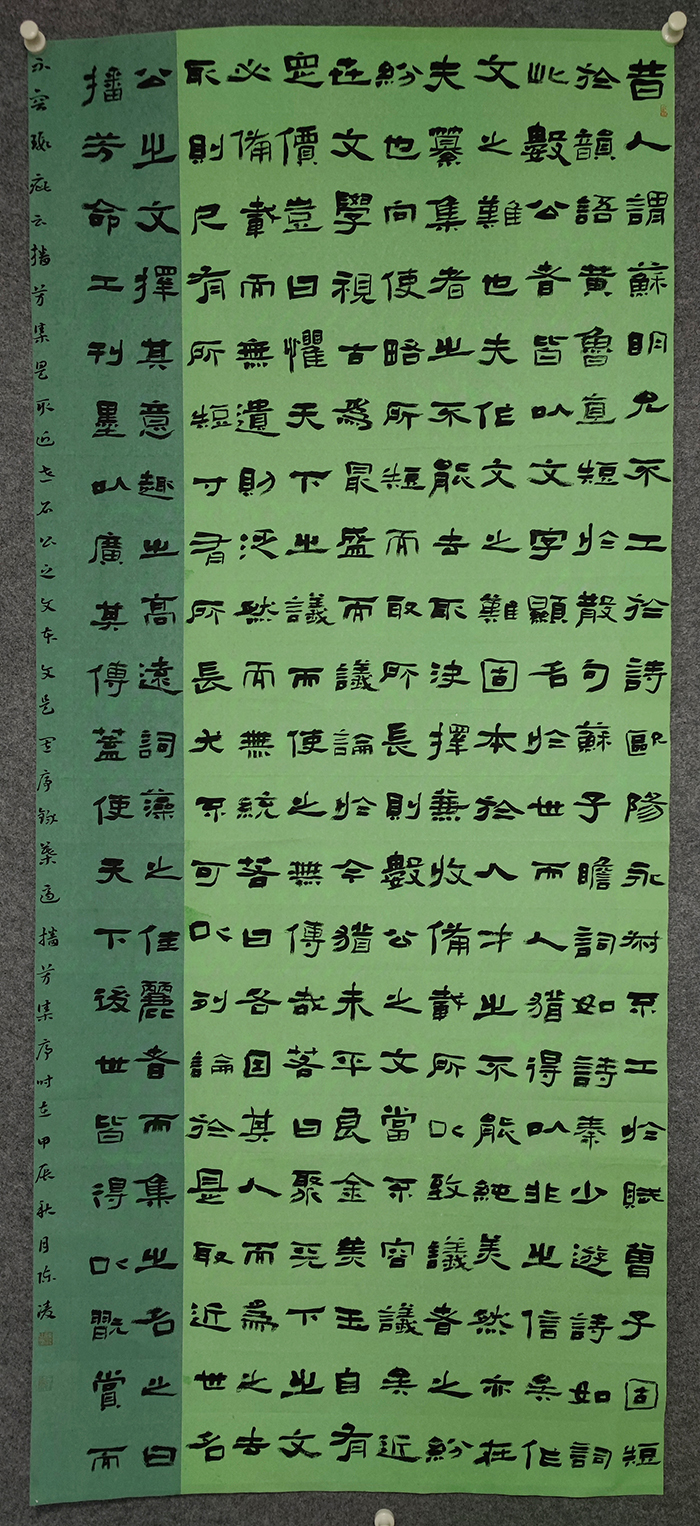 昔人謂蘇明允不工於詩歐陽永叔不工於賦曾子固短
於韻語黃魯直短於散句蘇子瞻詞如詩秦少游詩如詞
此數公者皆以文字顯名於世而人猶得以非之信矣作
文之難也夫作文之難固本於人才之不能純美然亦在
夫纂集者之不能去取決擇兼收備載所以致議者之紛
紛也向使略所短而取所長則數公之文當不容議矣近
世文學視古為最盛而議論於今猶未平良金美玉自有
定價豈曰懼天下之議而使之無傳哉若曰聚天下之文
必備載而無遺則泛然而無統若曰各因其人而為之去
取則尺有所短寸有所長尤不可以列論於是取近世名
公之文擇其意趣之高遠詞藻之佳麗者而集之名之曰
播芳命工刊墨以廣其傳蓋使天下後世皆得以翫賞而
不容瑕疵云播芳集是取近世名公之文本文是其序錄葉適播芳集序時在甲辰秋月陳凌